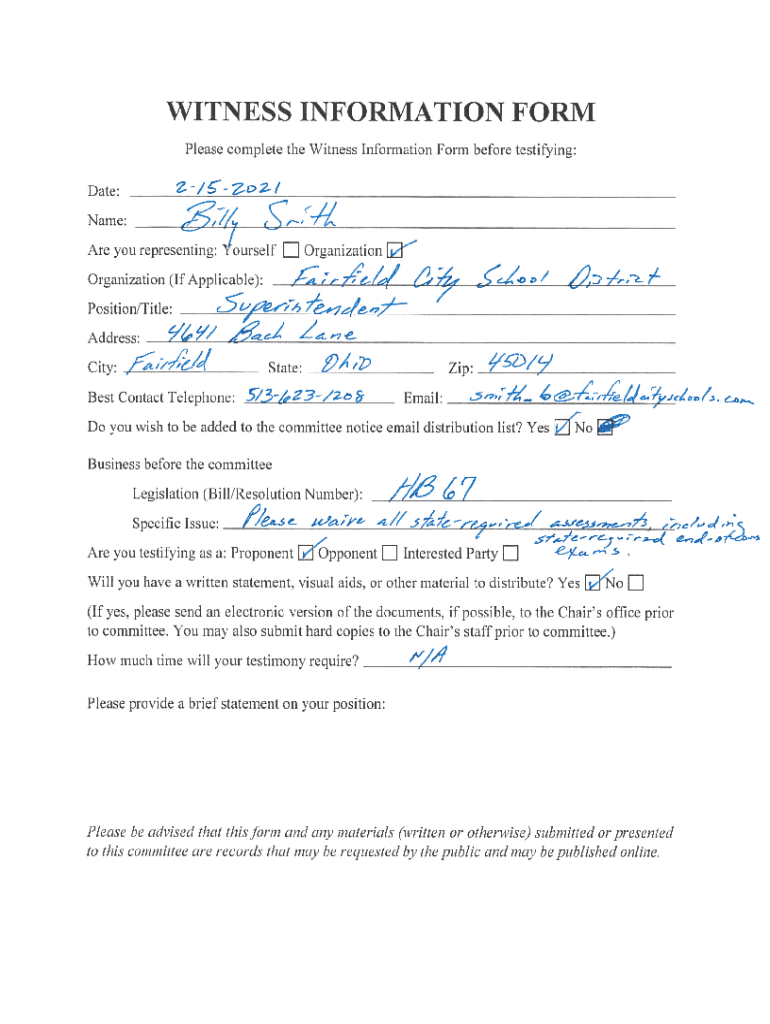 WITNESS INFORMATION FORM
Please complete the Witness Information Form before testifying:
Date: 2-15-2021
Name: Billy Smith
Are you representing: Yourself ☐ Organization ☑
Organization (If Applicable): Fairfield City School District
Position/Title: Superintendent
Address: 4641 Bach Lane
City: Fairfield State: Ohio Zip: 45014
Best Contact Telephone: 513-623-1208 Email: smith_b@fairfieldcityschools.com
Do you wish to be added to the committee notice email distribution list? Yes ☑ No ☐
Business before the committee
Legislation (Bill/Resolution Number): HB 67
Specific Issue: Please waive all state-required assessments, including
state-required end-of-course
Are you testifying as a: Proponent ☑ Opponent ☐ Interested Party ☐ exams.
Will you have a written statement, visual aids, or other material to distribute? Yes ☑ No ☐
(If yes, please send an electronic version of the documents, if possible, to the Chair's office prior
to committee. You may also submit hard copies to the Chair's staff prior to committee.)
How much time will your testimony require? N/A
Please provide a brief statement on your position:
Please be advised that this form and any materials (written or otherwise) submitted or presented
to this committee are records that may be requested by the public and may be published online.